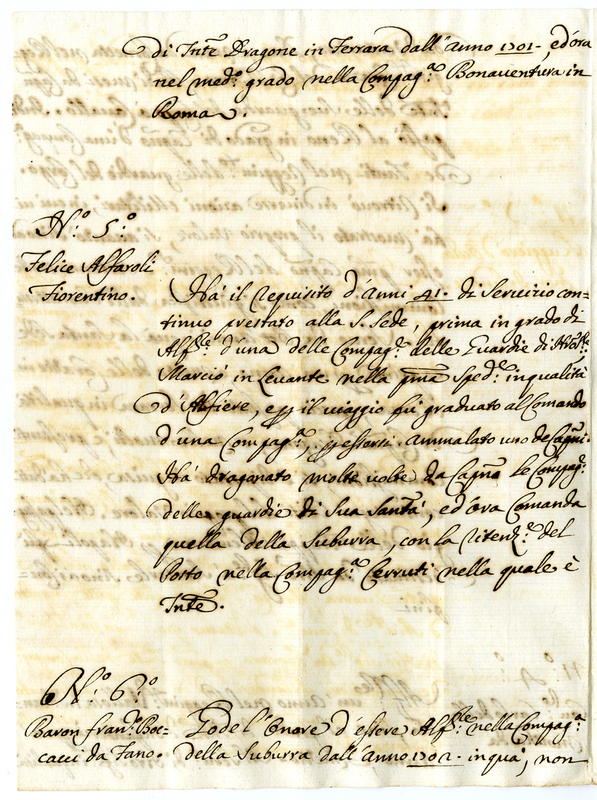 di Intẽ Dragone in Ferrara dall'anno 1701-, ed'ora
nel med.º grado nella Compag.ª Bonaventura in
Roma.
N.º 5.º
Felice Alfaroli
Fiorentino.
Ha' il requisito d'anni 41. di Servizio con=
tinuo prestato alla S. Sede, prima in grado di
Alf.re d'una delle Compag.e delle Guardie di
Marciò in Levante nella pma Sped.e in qualità
d'Alfiere, e p il viaggio fù graduato al Comando
d'una Compag.ª, p essersi ammalato uno de Capni.
Ha' draganato molte volte da Capno le Compag.e
delle guardie di Sua Santà, ed'ora Comanda
quella della Suburra, con la ritenz.e del
Posto nella Compag.ª Cerruti nella quale è
Intẽ.
N.º 6.º
Baron Fran.º Boc=
cacci da Fano.
Gode l'Onore d'essere Alf.re nella Compag.ª
della Suburra dall'anno 1702- in quà, non